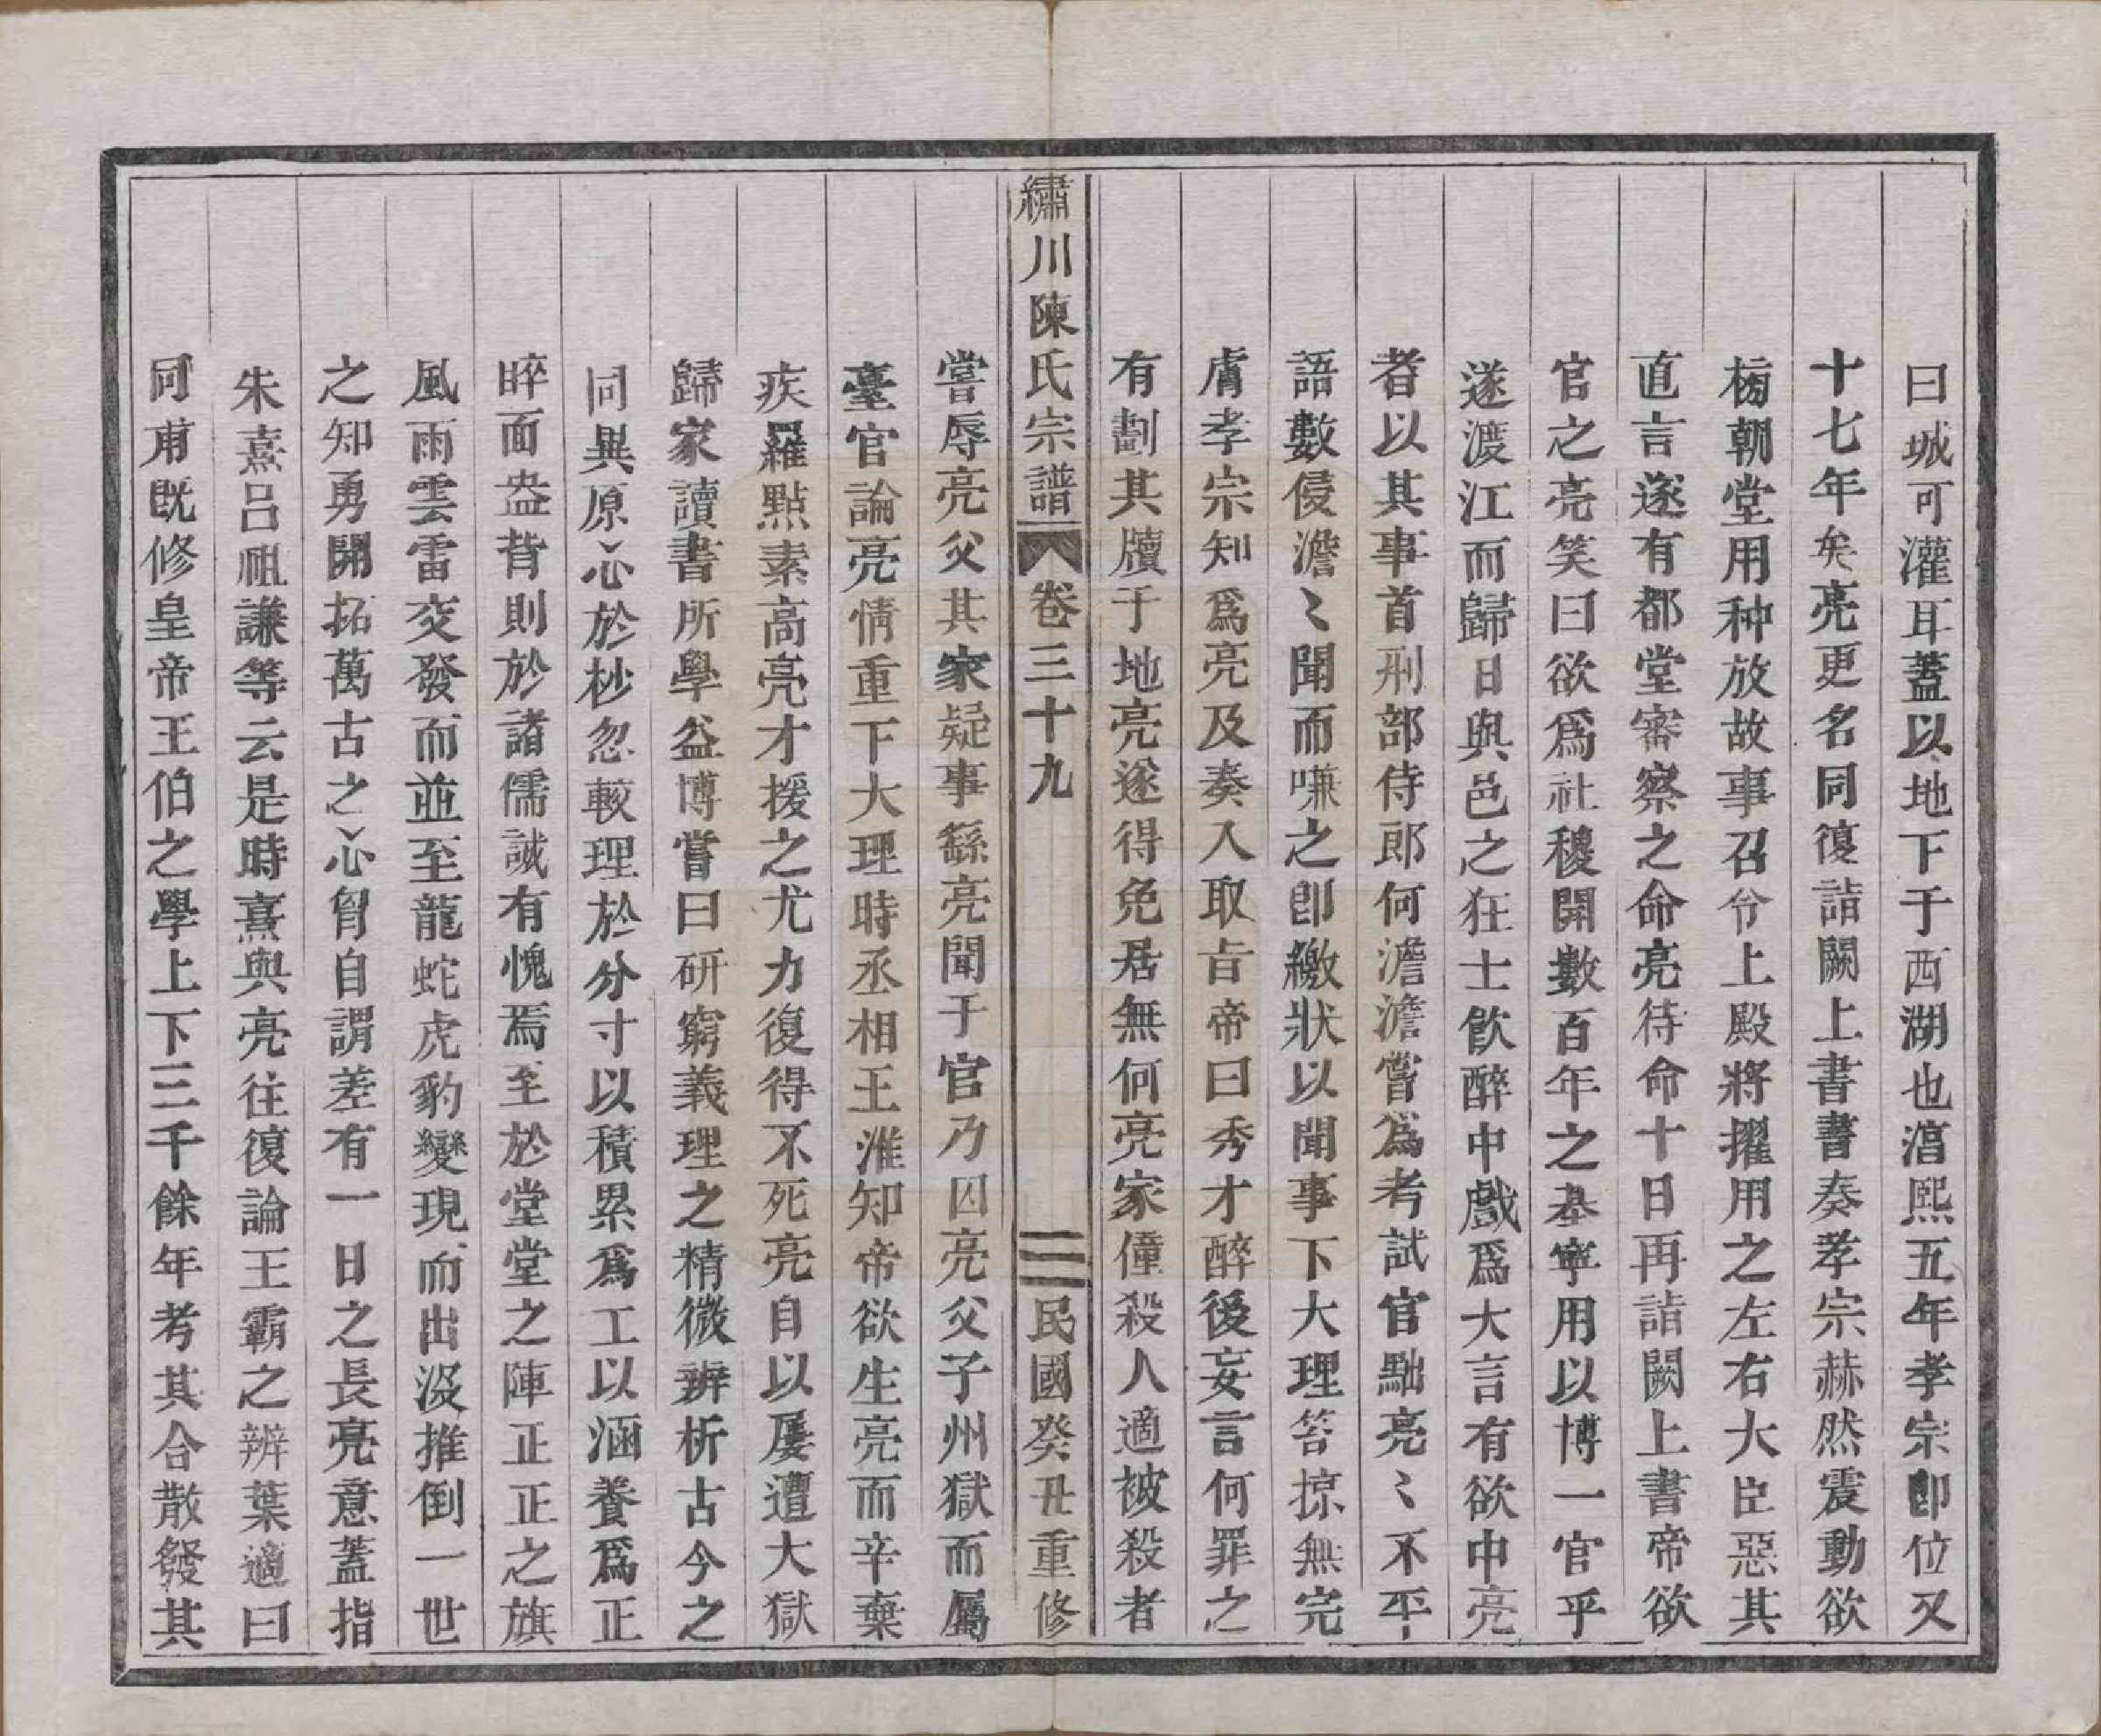 曰城可灌耳蓋以地下于西湖也湻熙五年孝宗卽位又
十七年矣亮更名同復詣闕上書書奏孝宗赫然震動欲
榜朝堂用种放故事召令上殿將擢用之左右大臣惡其
直言遂有都堂審察之命亮待命十日再詣闕上書帝欲
官之亮笑曰欲爲社稷開數百年之基寧用以博一官乎
遂渡江而歸日與邑之狂士飮醉中戲爲大言有欲中亮
者以其事首刑部侍郎何澹澹嘗爲考試官黜亮〻不平
語數侵澹〻聞而嗛之卽繳狀以聞事下大理笞掠無完
膚孝宗知爲亮及奏入取旨帝曰秀才醉後妄言何罪之
有劃其牘于地亮遂得免居無何亮家僮殺人適被殺者
繡川陳氏宗譜 卷三十九 三 民國癸丑重修
嘗辱亮父其家疑事繇亮聞于官乃囚亮父子州獄而屬
臺官論亮情重下大理時丞相王淮知帝欲生亮而辛棄
疾羅點素高亮才援之尤力復得不死亮自以屢遭大獄
歸家讀書所學益博嘗曰研窮義理之精微辨析古今之
同異原心於杪忽較理於分寸以積累爲工以涵養爲正
睟面盎背則於諸儒誠有愧焉至於堂堂之陣正正之旗
風雨雲雷交發而並至龍蛇虎豹變現而出沒推倒一世
之知勇開拓萬古之心胷自謂差有一日之長亮意蓋指
朱熹呂祖謙等云是時熹與亮往復論王霸之辨葉適曰
同甫既修皇帝王伯之學上下三千餘年考其合散發其